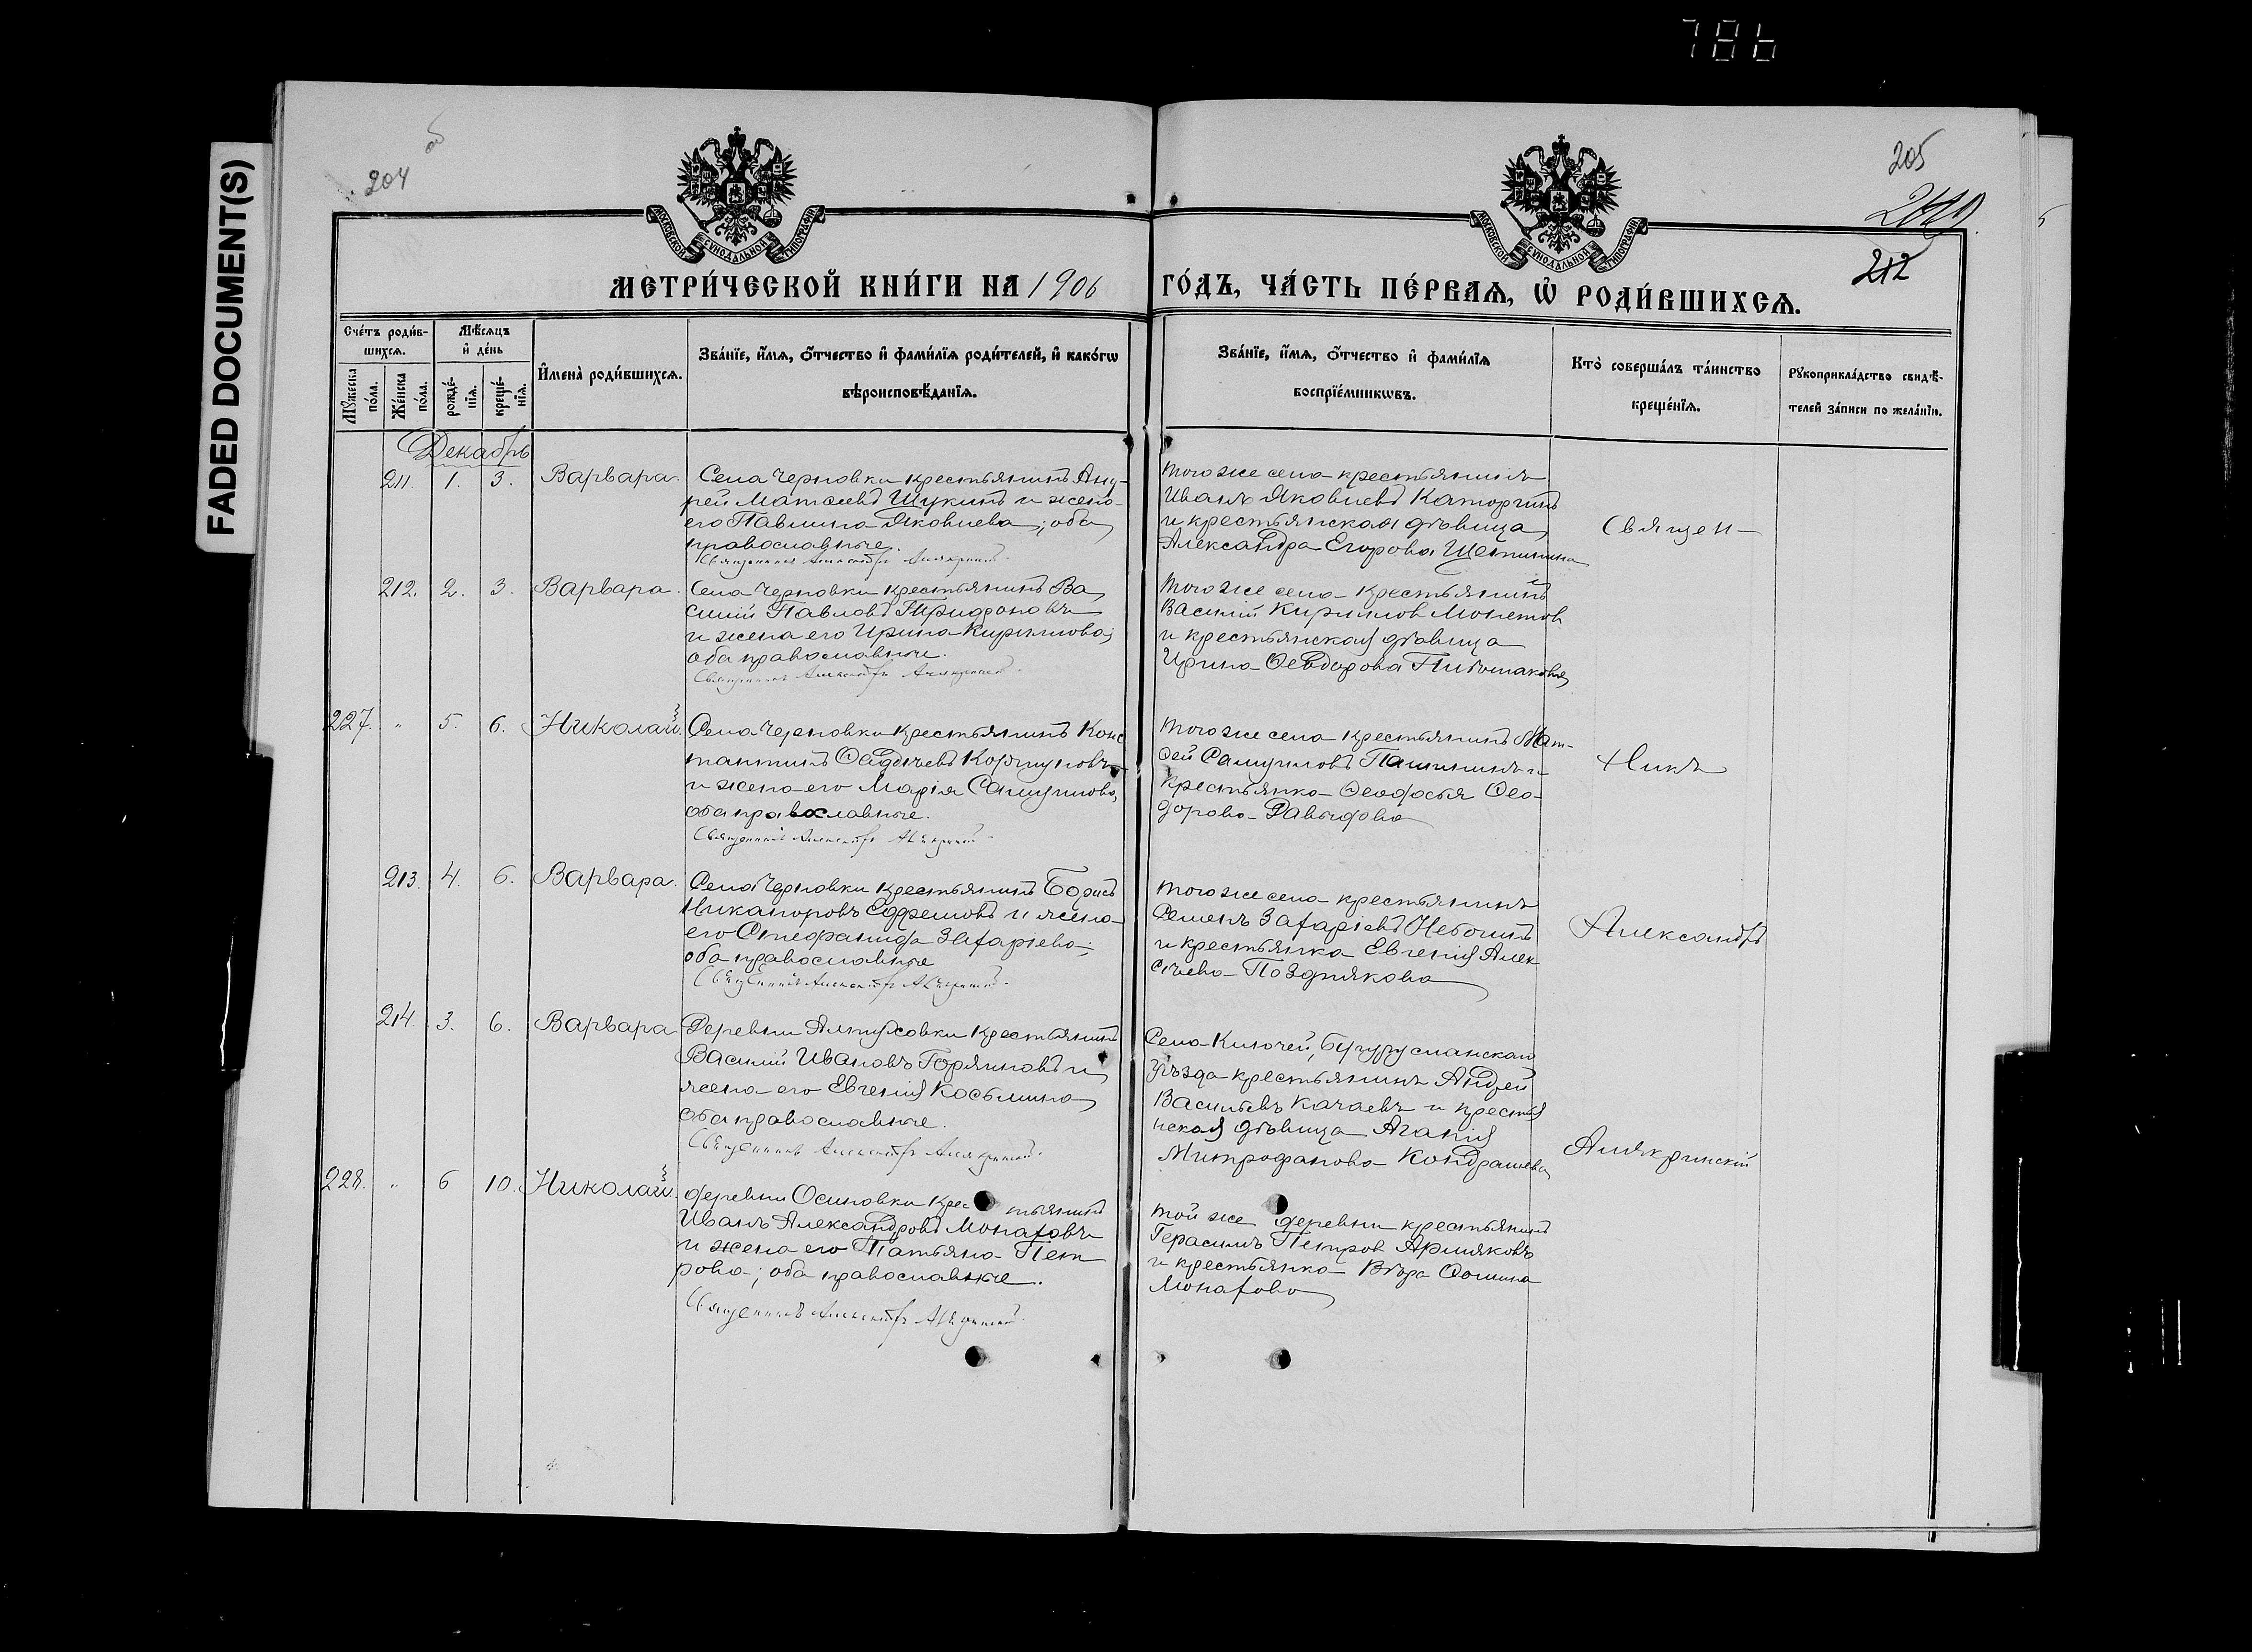 786
FADED DOCUMENT(S)
204
об
205
212
МОСКОВСКОЙ СѴНОДАЛЬНОЙ ТИПОГРАФІИ
МОСКОВСКОЙ СѴНОДАЛЬНОЙ ТИПОГРАФІИ
МЕТРИ́ЧЕСКОЙ КНИ́ГИ НА 1906 ГО́ДЪ, ЧА́СТЬ ПЕ́РВАѦ, Ѡ҆ РОДИ́ВШИХСѦ.
Сче́тъ роди́в-
шихсѧ.
Мѣ́сѧцъ
и҆ де́нь
Мꙋ́жеска
по́ла.
Же́нска
по́ла.
рожде́-
нїѧ.
креще́-
нїѧ.
И҆мена̀ роди́вшихсѧ.
Зва́нїе, и҆́мѧ, ѻ҆́тчество и҆ фами́лїѧ роди́телей, и҆ како́гѡ
вѣроисповѣ́данїѧ.
Зва́нїе, и҆́мѧ, ѻ҆́тчество и҆ фами́лїѧ
воспрїе́мникѡвъ.
Кто̀ соверша́лъ та́инство
креще́нїѧ.
Рꙋкоприкла́дство свидѣ́-
телей за́писи по жела́нїю.
Декабрь
211. 1. 3. Варвара.
Села Черновки крестьянинъ Анд-
рей Матѳеевъ Щукинъ и жена
его Павлина Яковлева; оба
православные.
Священникъ Александръ Алякринскій
того же села крестьянинъ
Иванъ Яковлевъ Каторгинъ
и крестьянская дѣвица
Александра Егорова
Священ-
212. 2. 3. Варвара.
Села Черновки крестьянинъ Ва
силій Павловъ
и жена его Ирина Кириллова;
оба православные.
Священникъ Александръ Алякринскій
того же села крестьянинъ
Василій Кириллов Монетов
и крестьянская дѣвица
Ирина Ѳеодорова
227. " 5. 6. Николай.
Села Черновки крестьянинъ Конс
тантинъ Ѳаддѣевъ Коршуновъ
и жена его Марія Самуилова,
оба православные.
Священникъ Александръ Алякринскій
того же села крестьянинъ Мат-
ѳей Самуиловъ Пашининъ и
крестьянка Ѳеодосья Ѳео-
дорова Давыдова
никъ
213. 4. 6. Варвара.
Села Черновки крестьянинъ Борисъ
Никаноровъ Ефремовъ и жена
его Стефанида Захаріева;
оба православные
Священникъ Александръ Алякринскій
того же села крестьянинъ
Семенъ Захаріевъ
и крестьянка Евгенія Алек
сѣева Позднякова
Александръ
214. 3. 6. Варвара
Деревни крестьянинъ
Василій Ивановъ Горяиновъ и
жена его Евгенія Косьмина,
оба православные.
Священникъ Александръ Алякринскій
Села Ключей, Бугурусланскаго
уѣзда крестьянинъ Андрей
Васильевъ Качаевъ и крестья
нская дѣвица Агапія
Митрофанова Кондрашева
Алякринскій
228. " 6 10. Николай.
деревни Осиновки крестьянинъ
Иванъ Александровъ Монаховъ
и жена его Татьяна Пет
рова; оба православные.
Священникъ Александръ Алякринскій
той же деревни крестьянинъ
Герасимъ Петров Армяковъ
и крестьянка Вѣра Ѳомина
Монахова